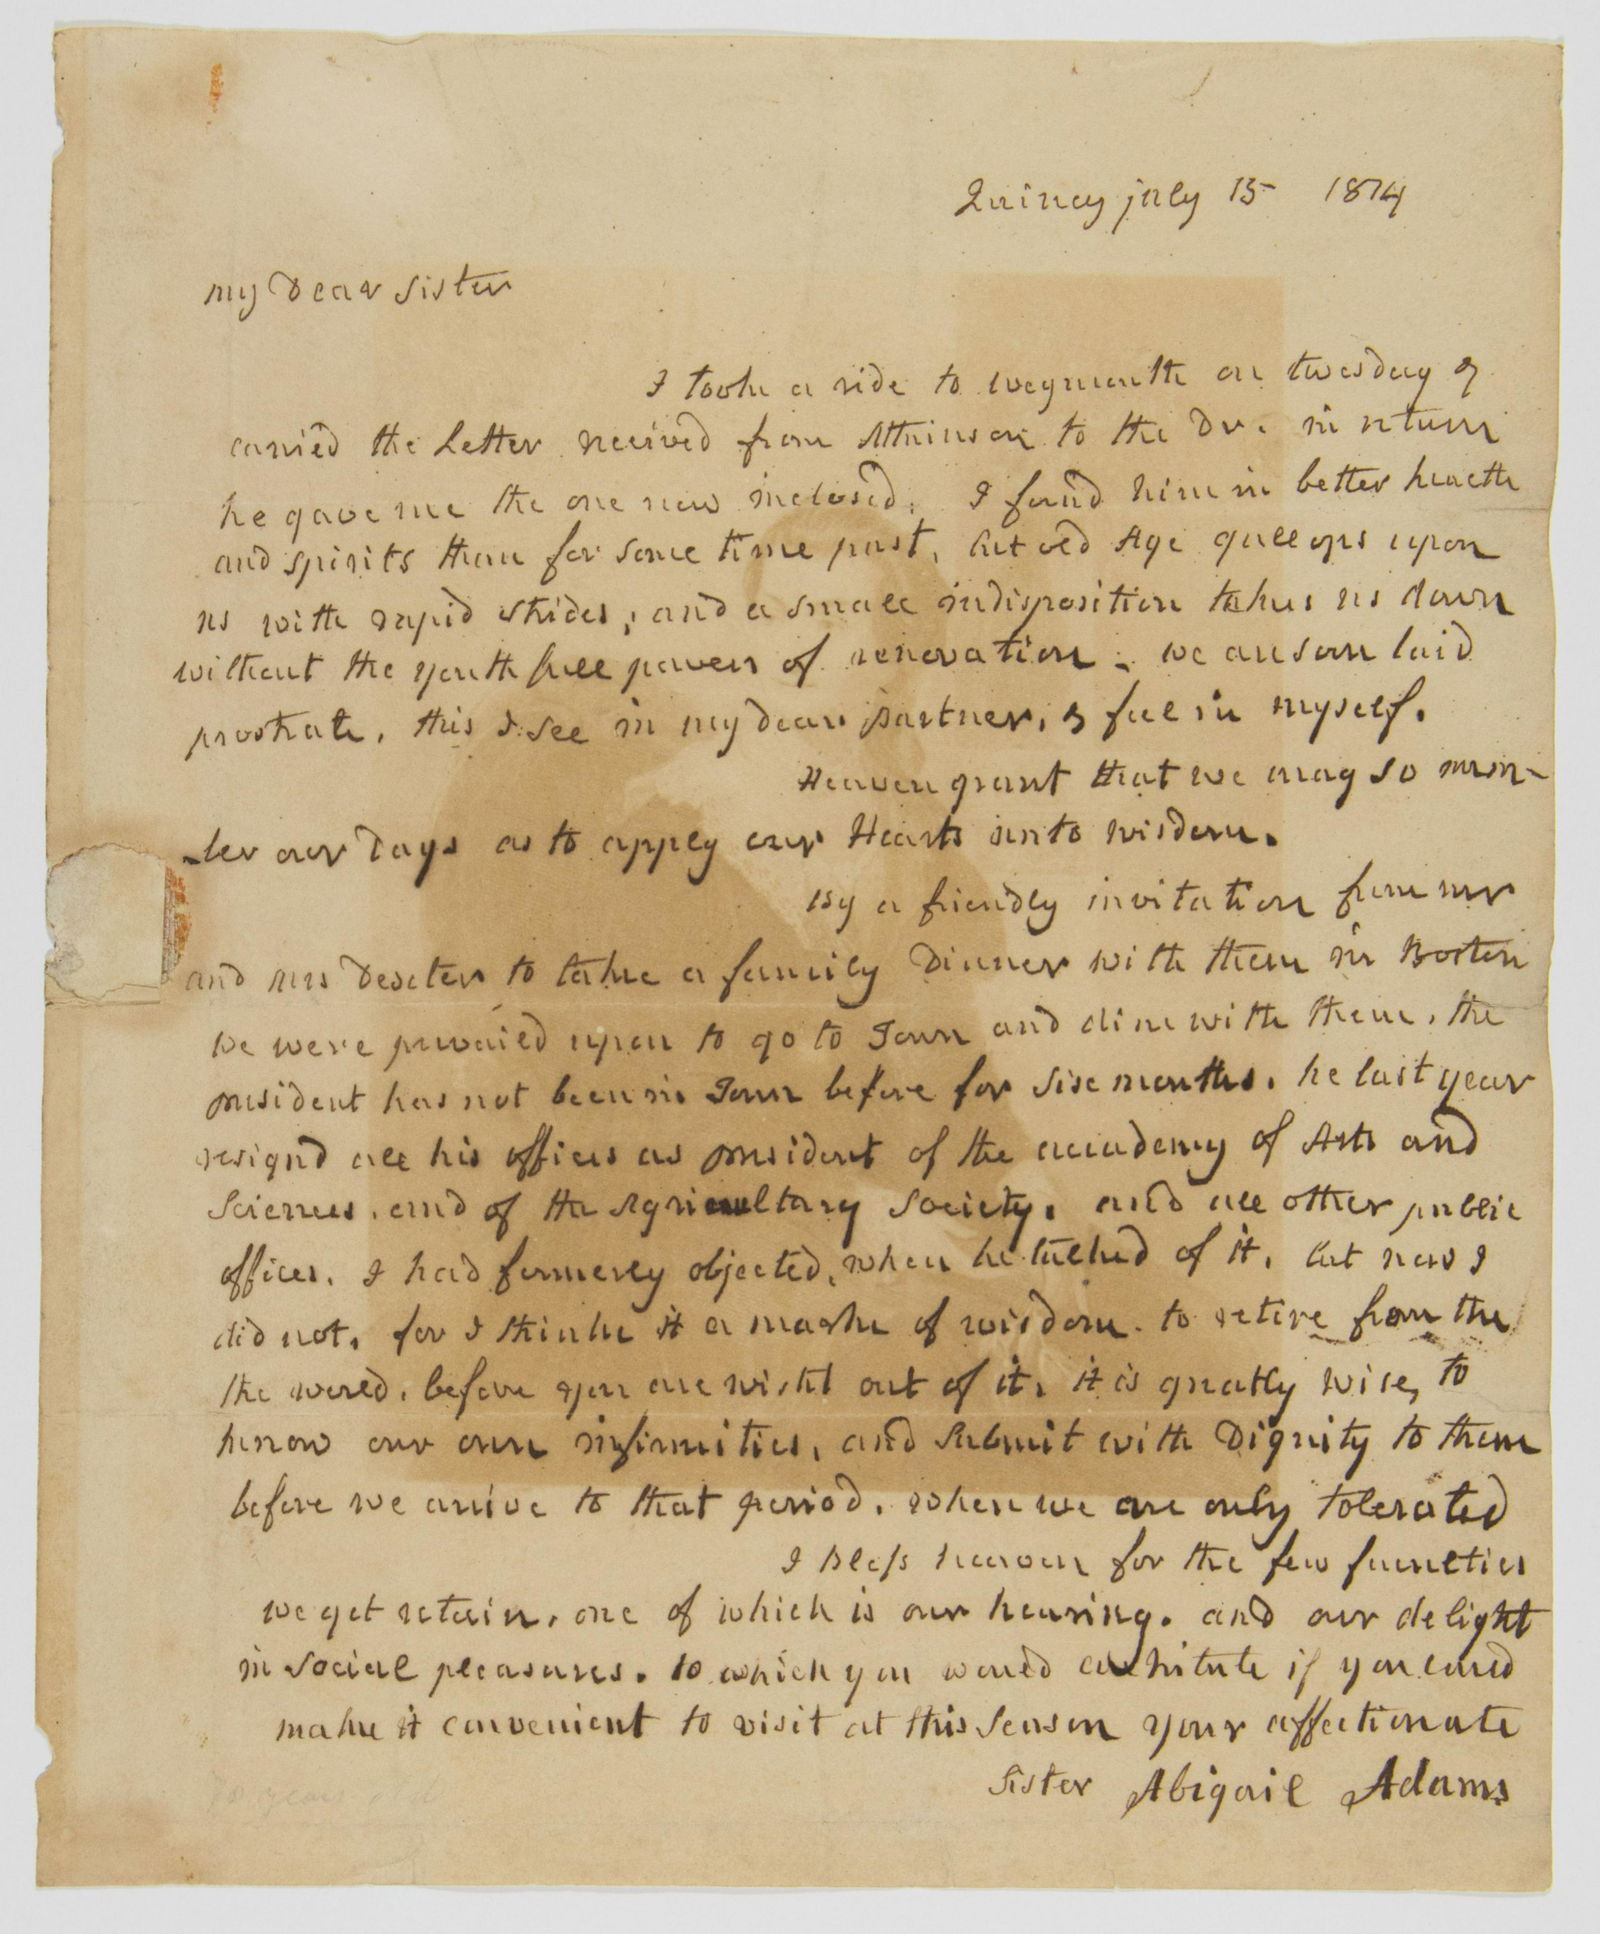 Quincy july 15 1814
my Dear Sister
I tooke a ride to weymouth on twesday &
carried the Letter received from Attkinson to the Dr. in return
he gave me the one now inclosed. I found him in better health
and spirits than for some time past, but old Age gallops upon
us with rapid strides, and a small indisposition takes us down
without the youthfull powers of renovation. we are soon laid
prostrate, this I see in my dear partner, & feel in myself.
Heaven grant that we may so num-
-ber our Days as to apply our Hearts unto wisdom.
By a friendly invitation from mr
and mrs Dexter to take a family Dinner with them in Boston
we were prevailed upon to go to Town and dine with them, the
president has not been in Town before for Six months. he last year
resignd all his offices as president of the accademy of Arts and
Sciences, and of the Agricultary Society. and all other public
offices. I had formerly objected, when he talked of it, but now I
did not, for I thinke it a marke of wisdom to retire from the
the world, before you are wisht out of it, it is greatly wise, to
know our own infirmities, and submit with Dignity to them
before we arrive to that period, when we are only tolerated
I Bless heaven for the few faculties
we yet retain, one of which is our hearing. and our delight
in social pleasures. to which you would contribute if you could
make it convenient to visit at this Season your affectionate
Sister Abigail Adams